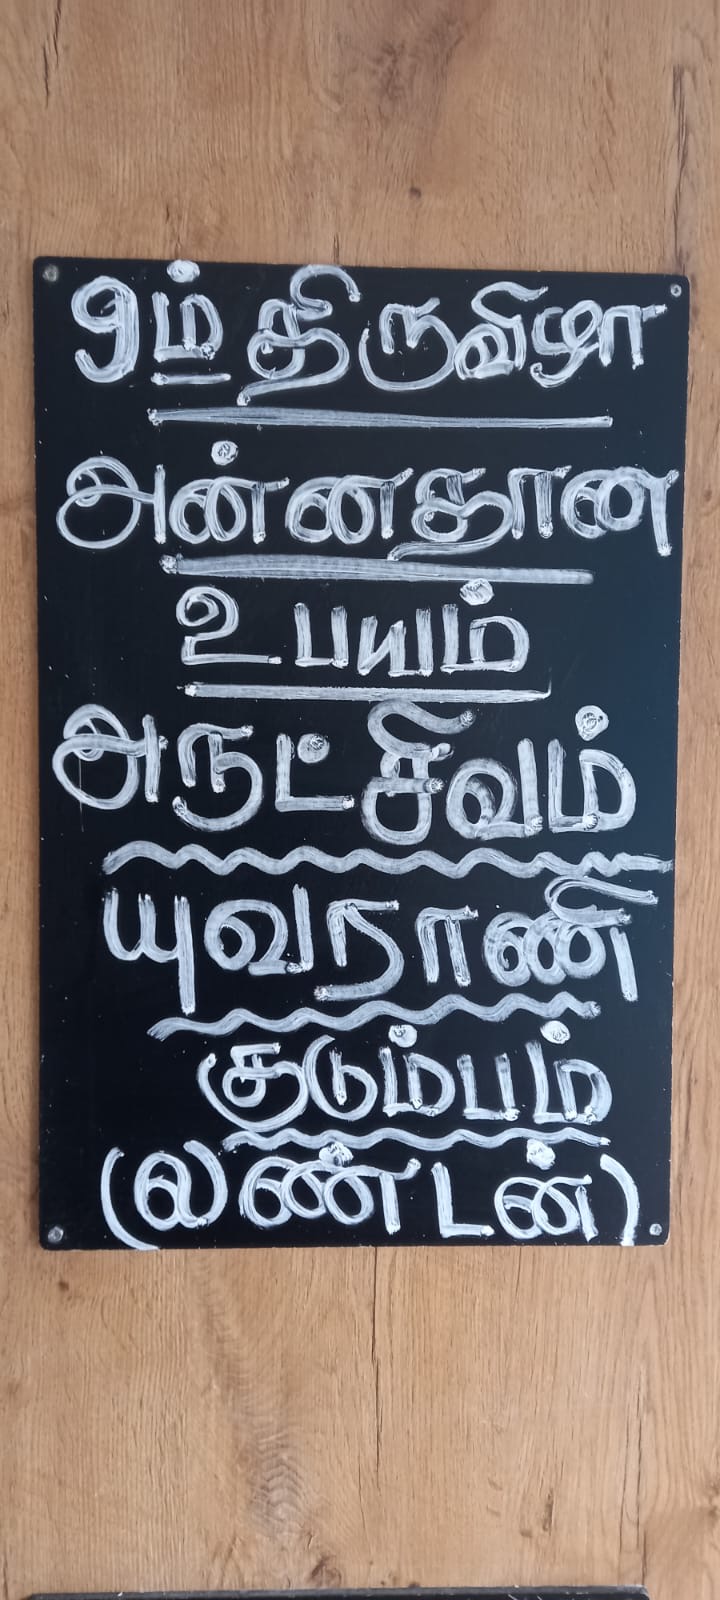 9ம் திருவிழா
அன்னதான
உபயம்
அருட்சிவம்
யுவராணி
குடும்பம்
(லண்டன்)